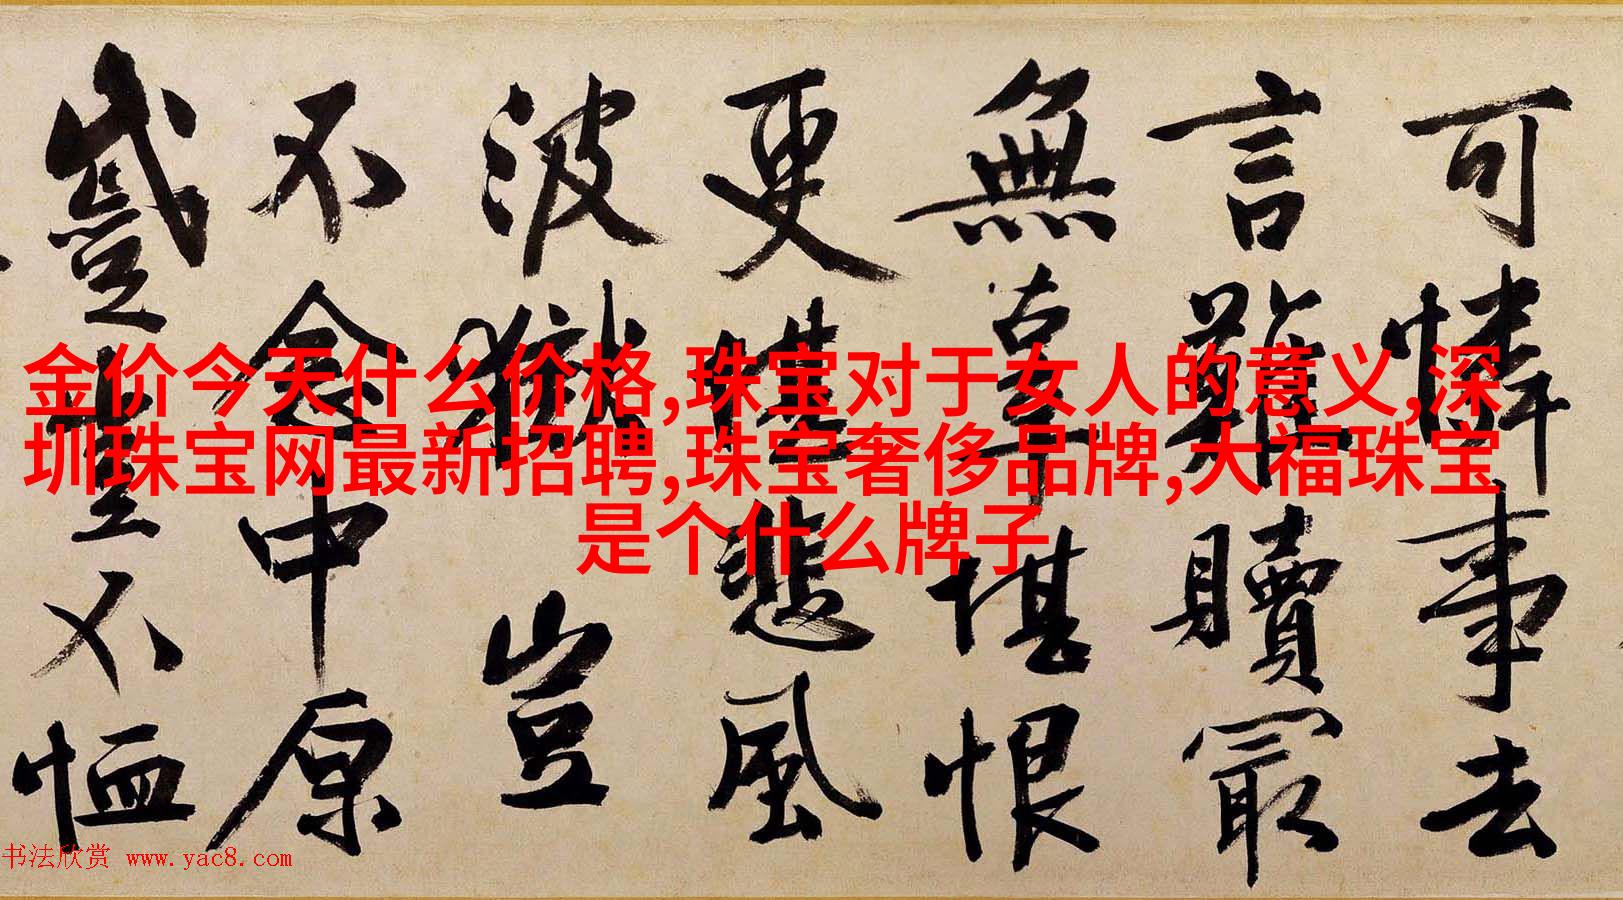 可憐事去
言難贖最
無辜堪恨
更堪悲風
波獄豈
不念中原
豈不恤
金价今天什么价格,珠宝对于女人的意义,深
圳珠宝网最新招聘,珠宝奢侈品牌,大福珠宝
是个什么牌子
书法欣赏 www.yac8.com